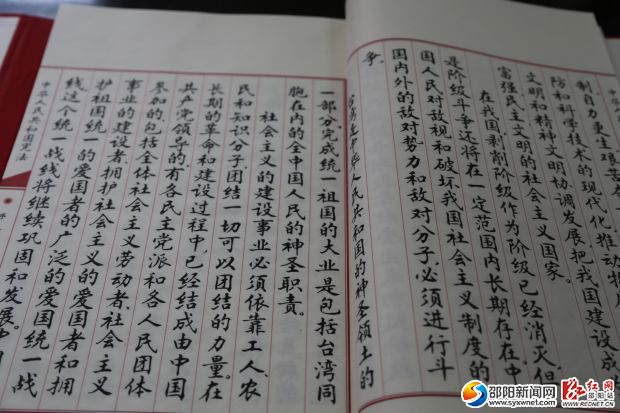 中华人民共
制自力更生艰苦
防和科学技术的现代化推动物
文明和精神文明协调发展把我国建设成
富强民主文明的社会主义国家。
在我国剥削阶级作为阶级已经消灭但
是阶级斗争还将在一定范围内长期存在中
国人民对敌视和破坏我国社会主义制度的
国内外的敌对势力和敌对分子必须进行斗
争。
台湾是中华人民共和国的神圣领土的
一部分。完成统一祖国的大业是包括台湾同
胞在内的全中国人民的神圣职责。
社会主义的建设事业必须依靠工人、农
民和知识分子,团结一切可以团结的力量。在
长期的革命和建设过程中,已经结成由中国
共产党领导的,有各民主党派和各人民团体
参加的,包括全体社会主义劳动者、社会主义
事业的建设者拥护社会主义的爱国者和拥
护祖国统一的爱国者的广泛的爱国统一战
线,这个统一战线将继续巩固和发展。中
中华人民共和国宪法
邵阳新闻网
www.syxwnet.com
红红网
邵阳站
REDNET.CN